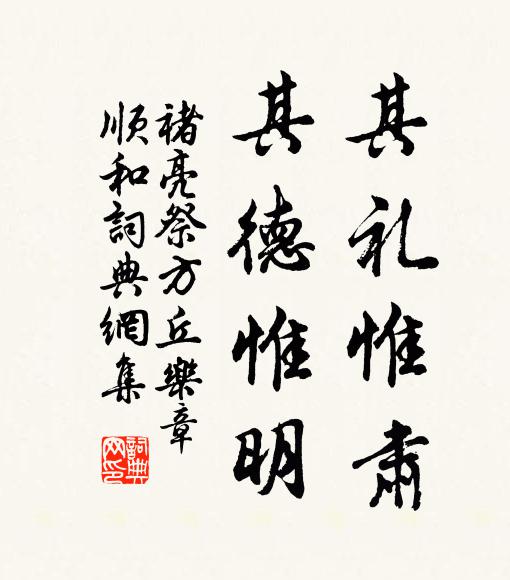 其礼惟肅
其德惟明
褚亮祭方丘樂章
順和詞典網集
詞典網印